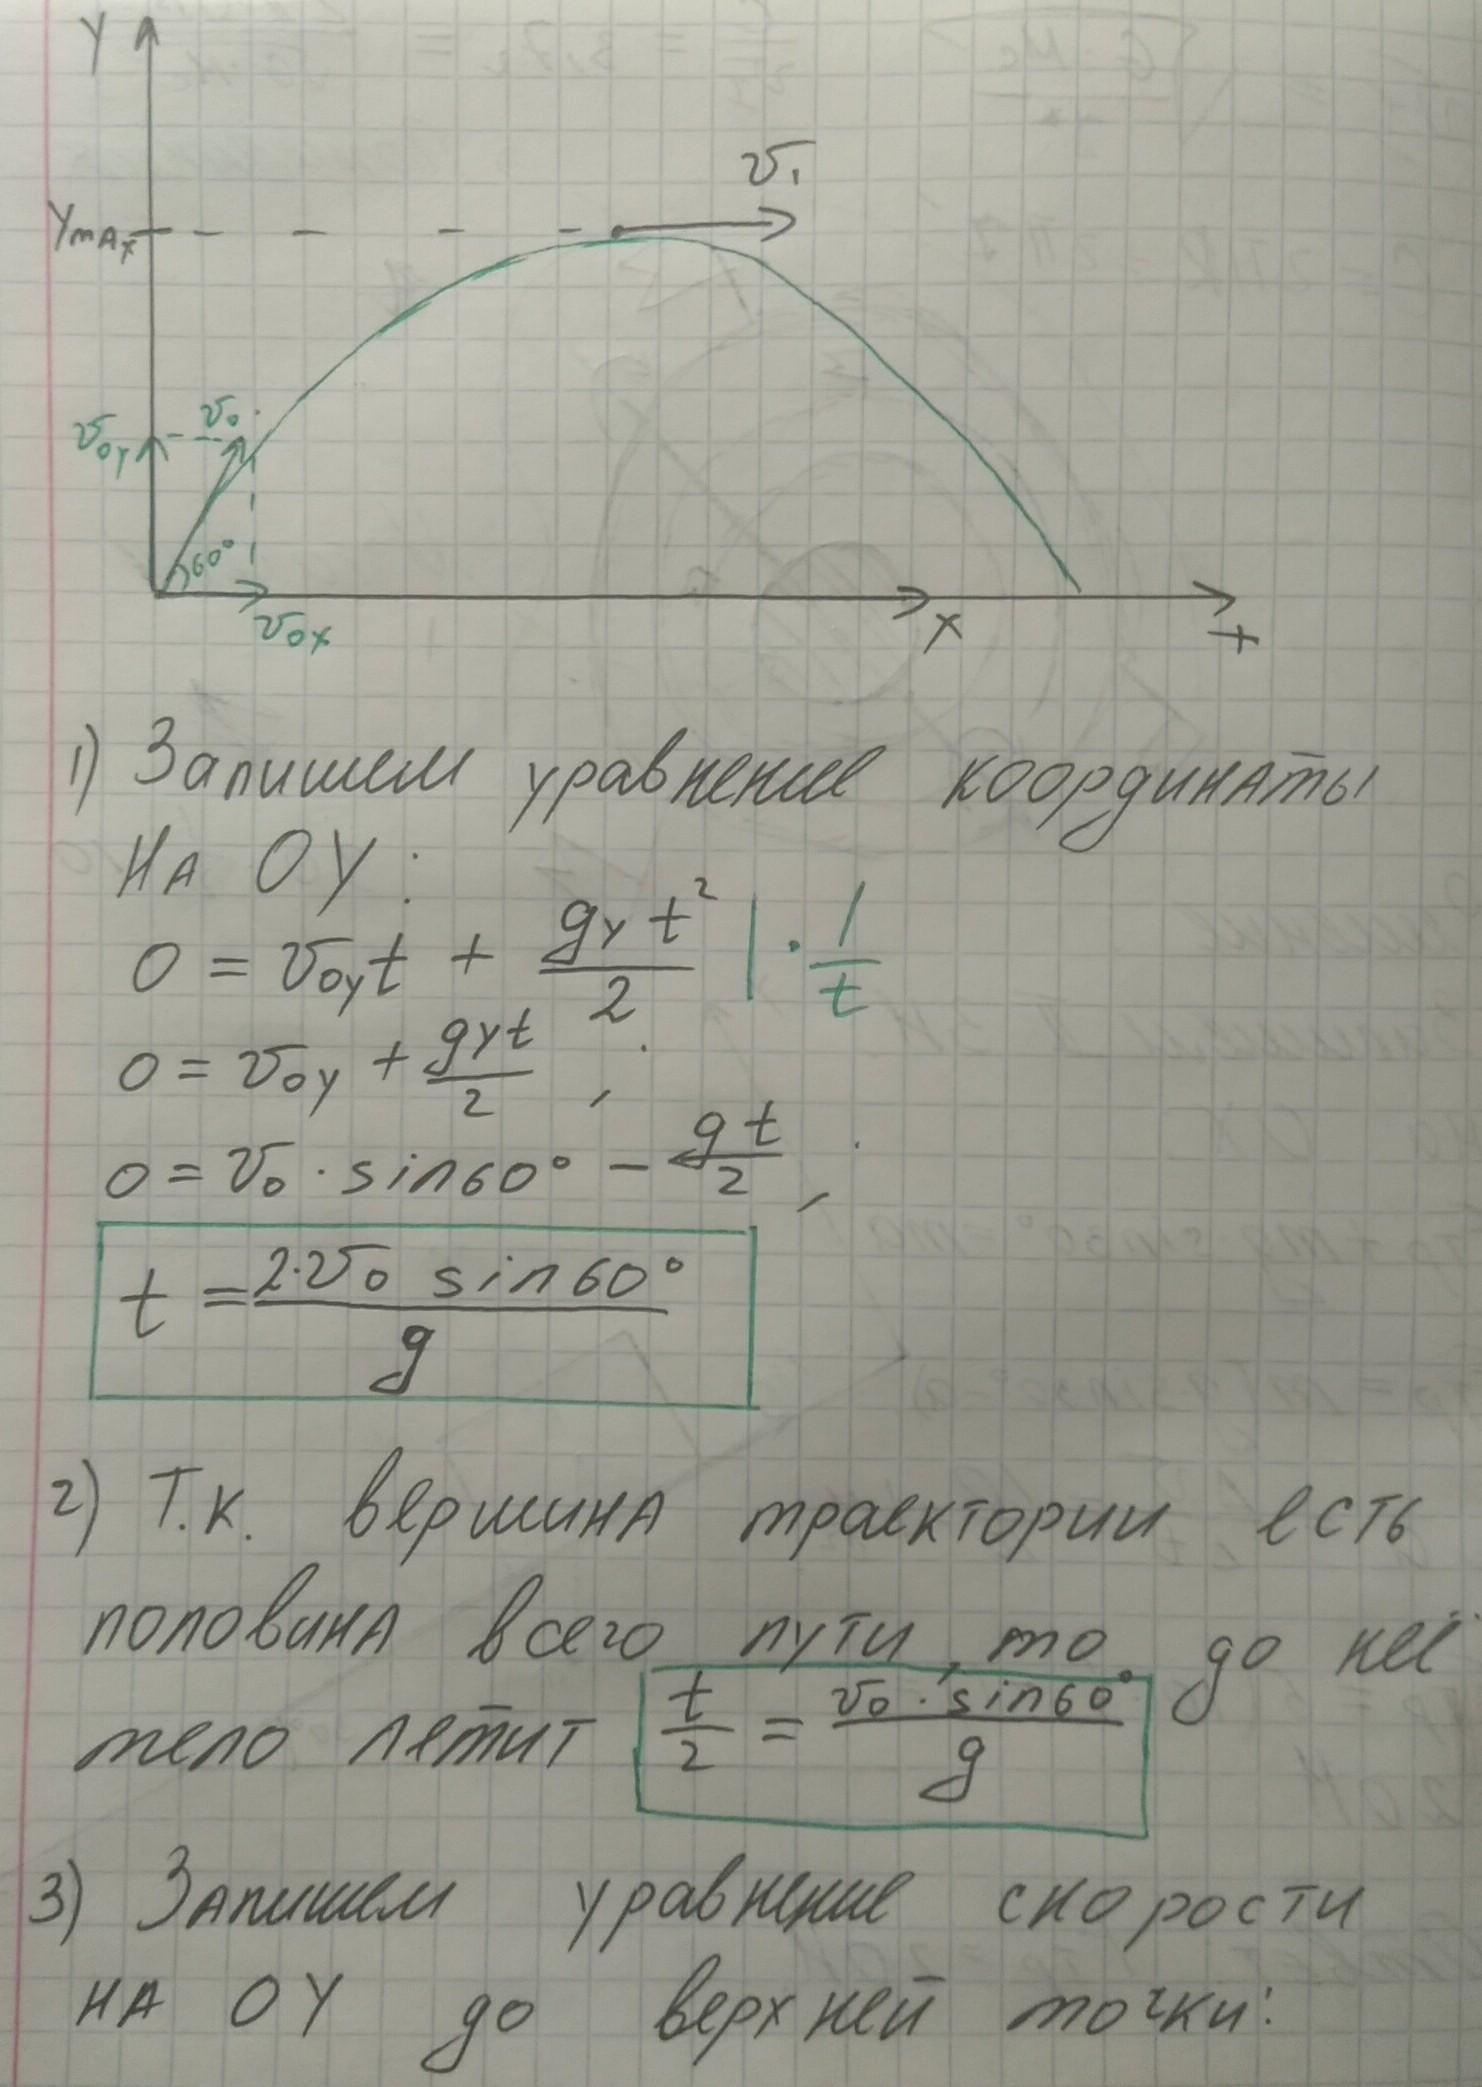 Y
v₁
Ymax
v₀
v₀y
60°
v₀x
x
x
1) Запишем уравнение координаты
на OY:
0 = v₀yt + gyt²/2 | · 1/t
0 = v₀y + gyt/2 ;
0 = v₀ · sin60° − gt/2 ;
t = 2·v₀ sin60°/g
2) Т.к. вершина траектории есть
половина всего пути, то до неё
тело летит t/2 = v₀ · sin60°/g
3) Запишем уравнение скорости
на OY до верхней точки: